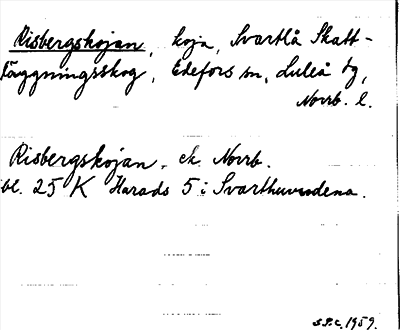 Risbergskojan, koja, Svartlå Skatt-
läggningsskog, Edefors sn, Luleå tg,
Norrb. l.
Risbergskojan, ek. Norrb.
bl. 25 K Harads 5 i Svarthuvudena.
S.P.C. 1959.